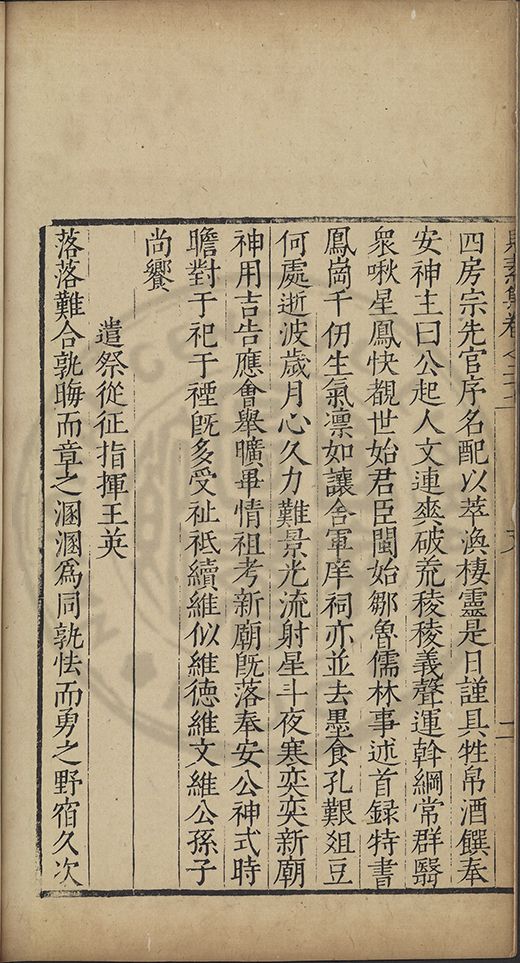 四房宗先官序名配以萃渙棲靈是日謹具牲帛酒饌奉
安神主曰公起人文連爽破荒稜稜義聲運斡綱常群翳
衆啾星鳳快覩世始君臣閩始鄒魯儒林事述首録特書
鳳崗千仞生氣凛如讓舍軍庠祠亦並去墨食孔艱俎豆
何處逝波歲月心久力難景光流射星斗夜寒奕奕新廟
神用吉告應會舉曠畢情祖考新廟旣落奉安公神式時
瞻對于祀于禋旣多受祉祗續維似維德維文維公孫子
尚饗
遣祭從征指揮王英
落落難合孰晦而章之溷溷爲同孰怯而勇之野宿久次